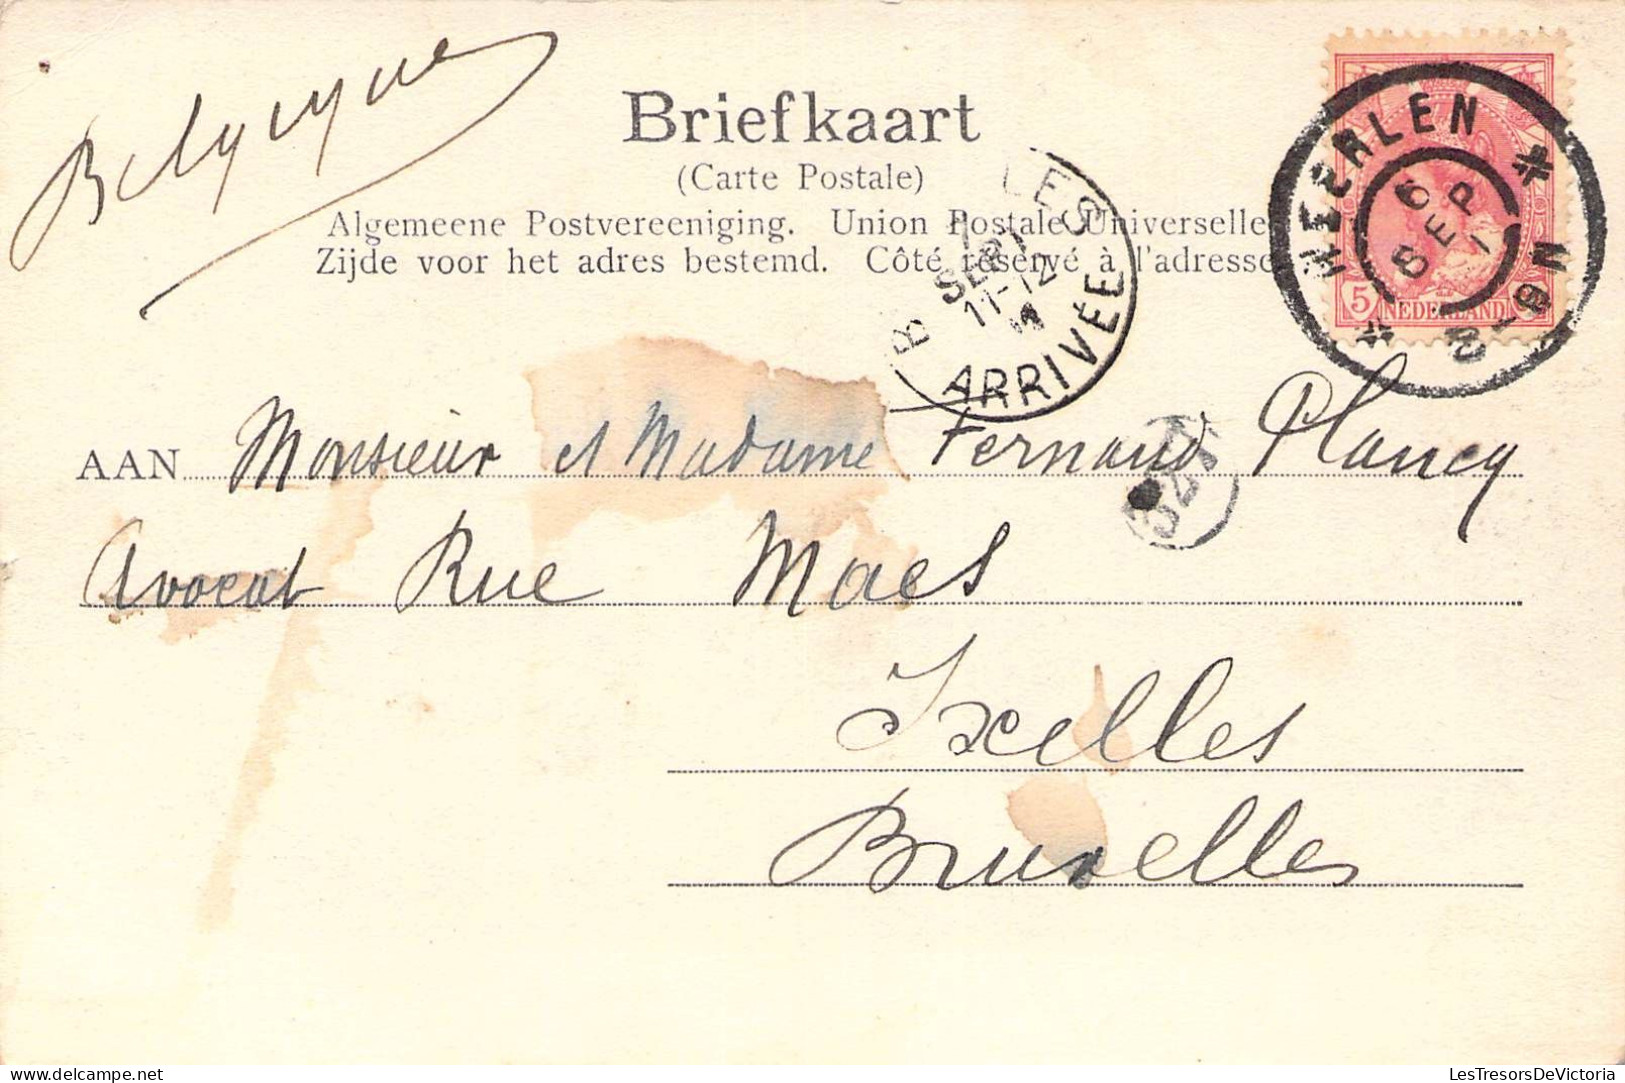 Belgique
Briefkaart
(Carte Postale)
Algemeene Postvereeniging. Union Postale Universelle
Zijde voor het adres bestemd. Côté réservé à l'adresse
HEERLEN
6 SEP
8-9 N
5 NEDERLAND
SEPT
11-12
ARRIVÉE
AAN Monsieur et Madame Fernand Plancq
Avocat Rue Maes
Ixelles
Bruxelles
LesTresorsDeVictoria